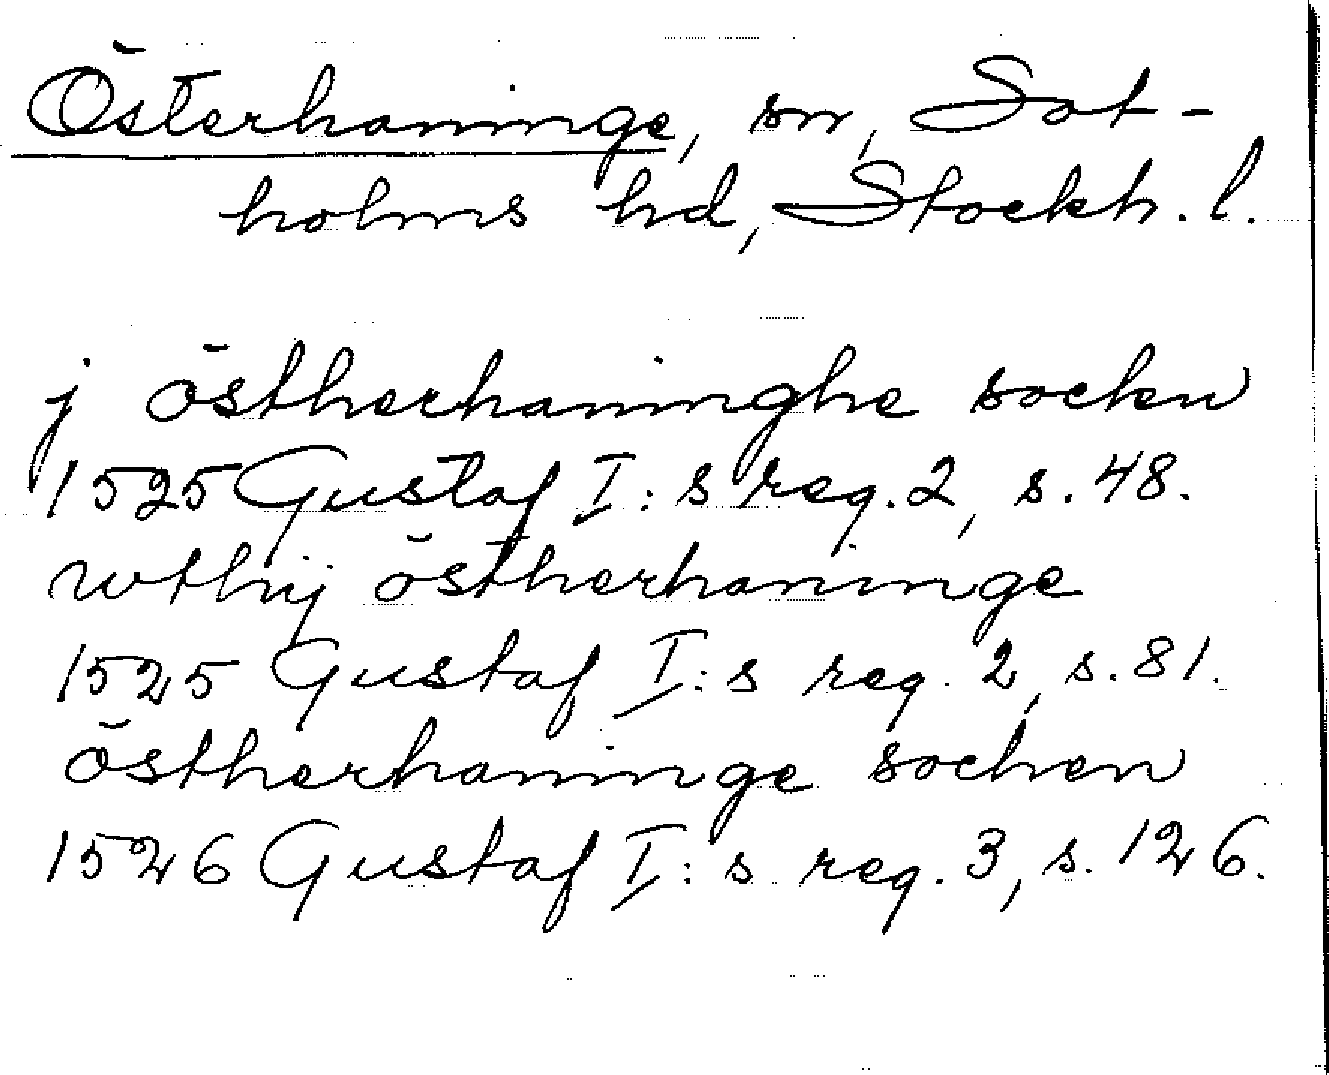 Österhaninge, sn, Sot-
holms hd, Stockh. l.
j östherhaninghe sockn
1525 Gustaf I:s reg. 2, s. 48.
wthij östherhaninge
1525 Gustaf I:s reg. 2, s. 81.
östherhaninge sochen
1526 Gustaf I:s reg. 3, s. 126.